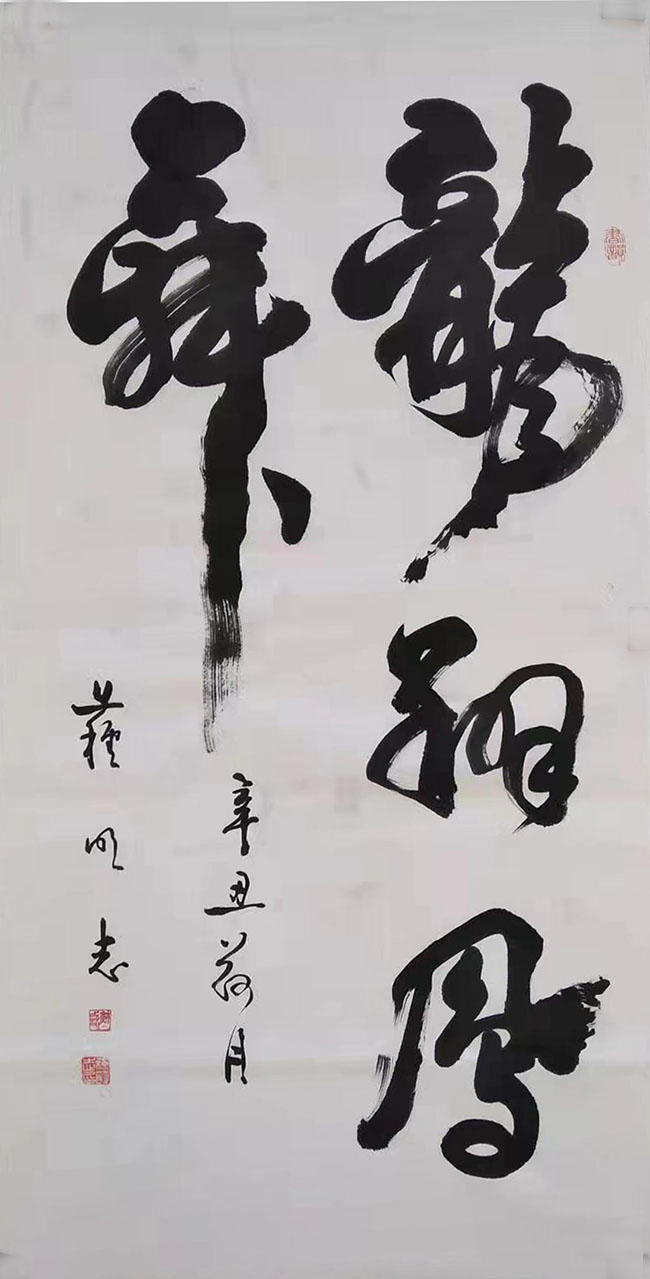 龍翔鳳
舞
辛丑荷月
蘇明志